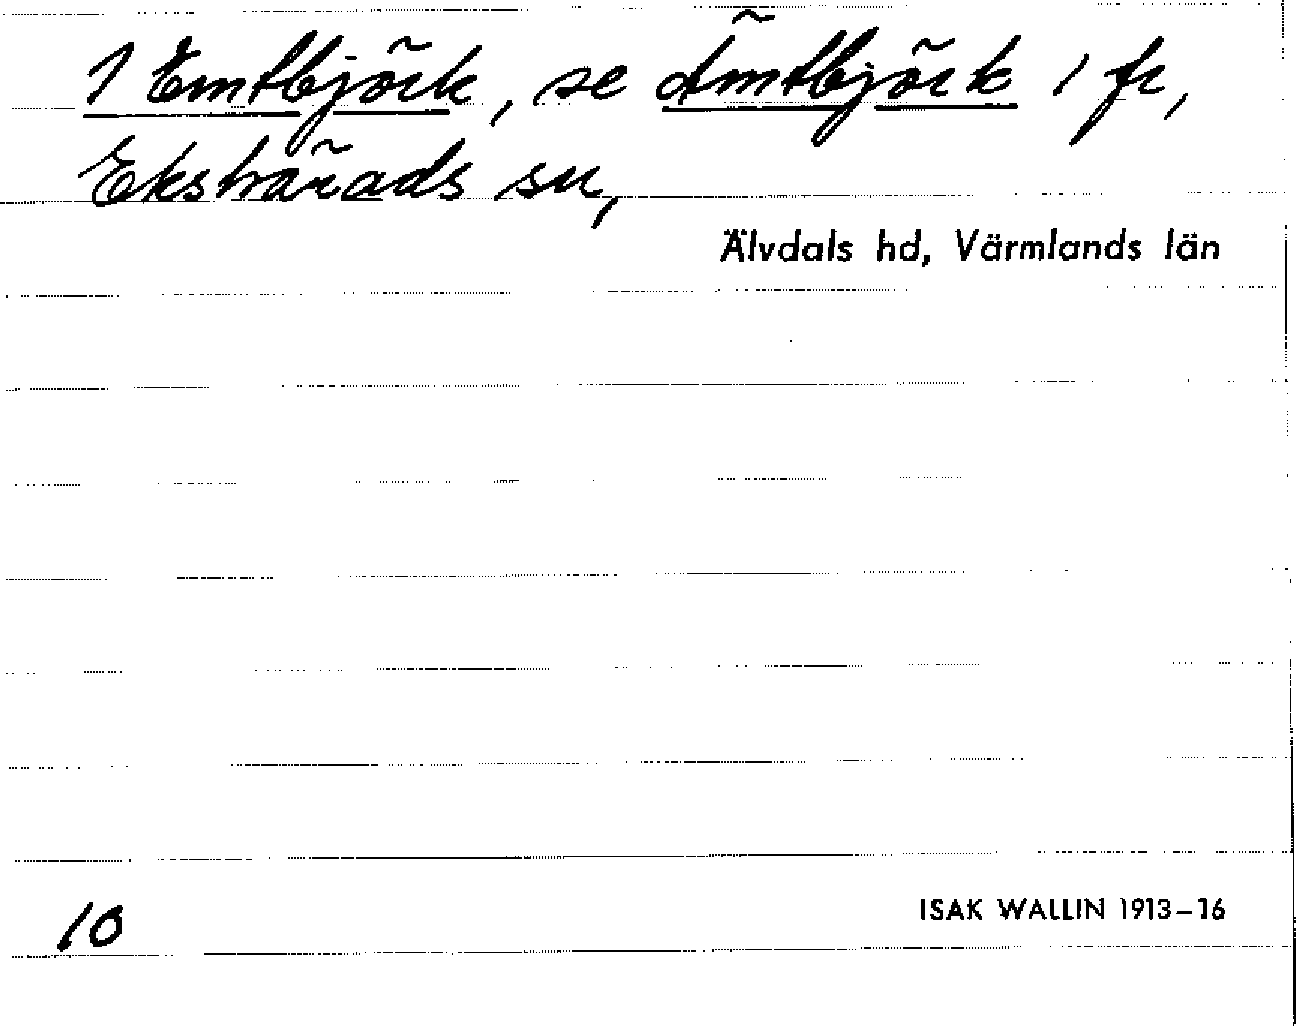 1 Emtbjörk, se Ämtbjörk 1 fr,
Ekshärads sn,
Älvdals hd, Värmlands län
10
ISAK WALLIN 1913–16